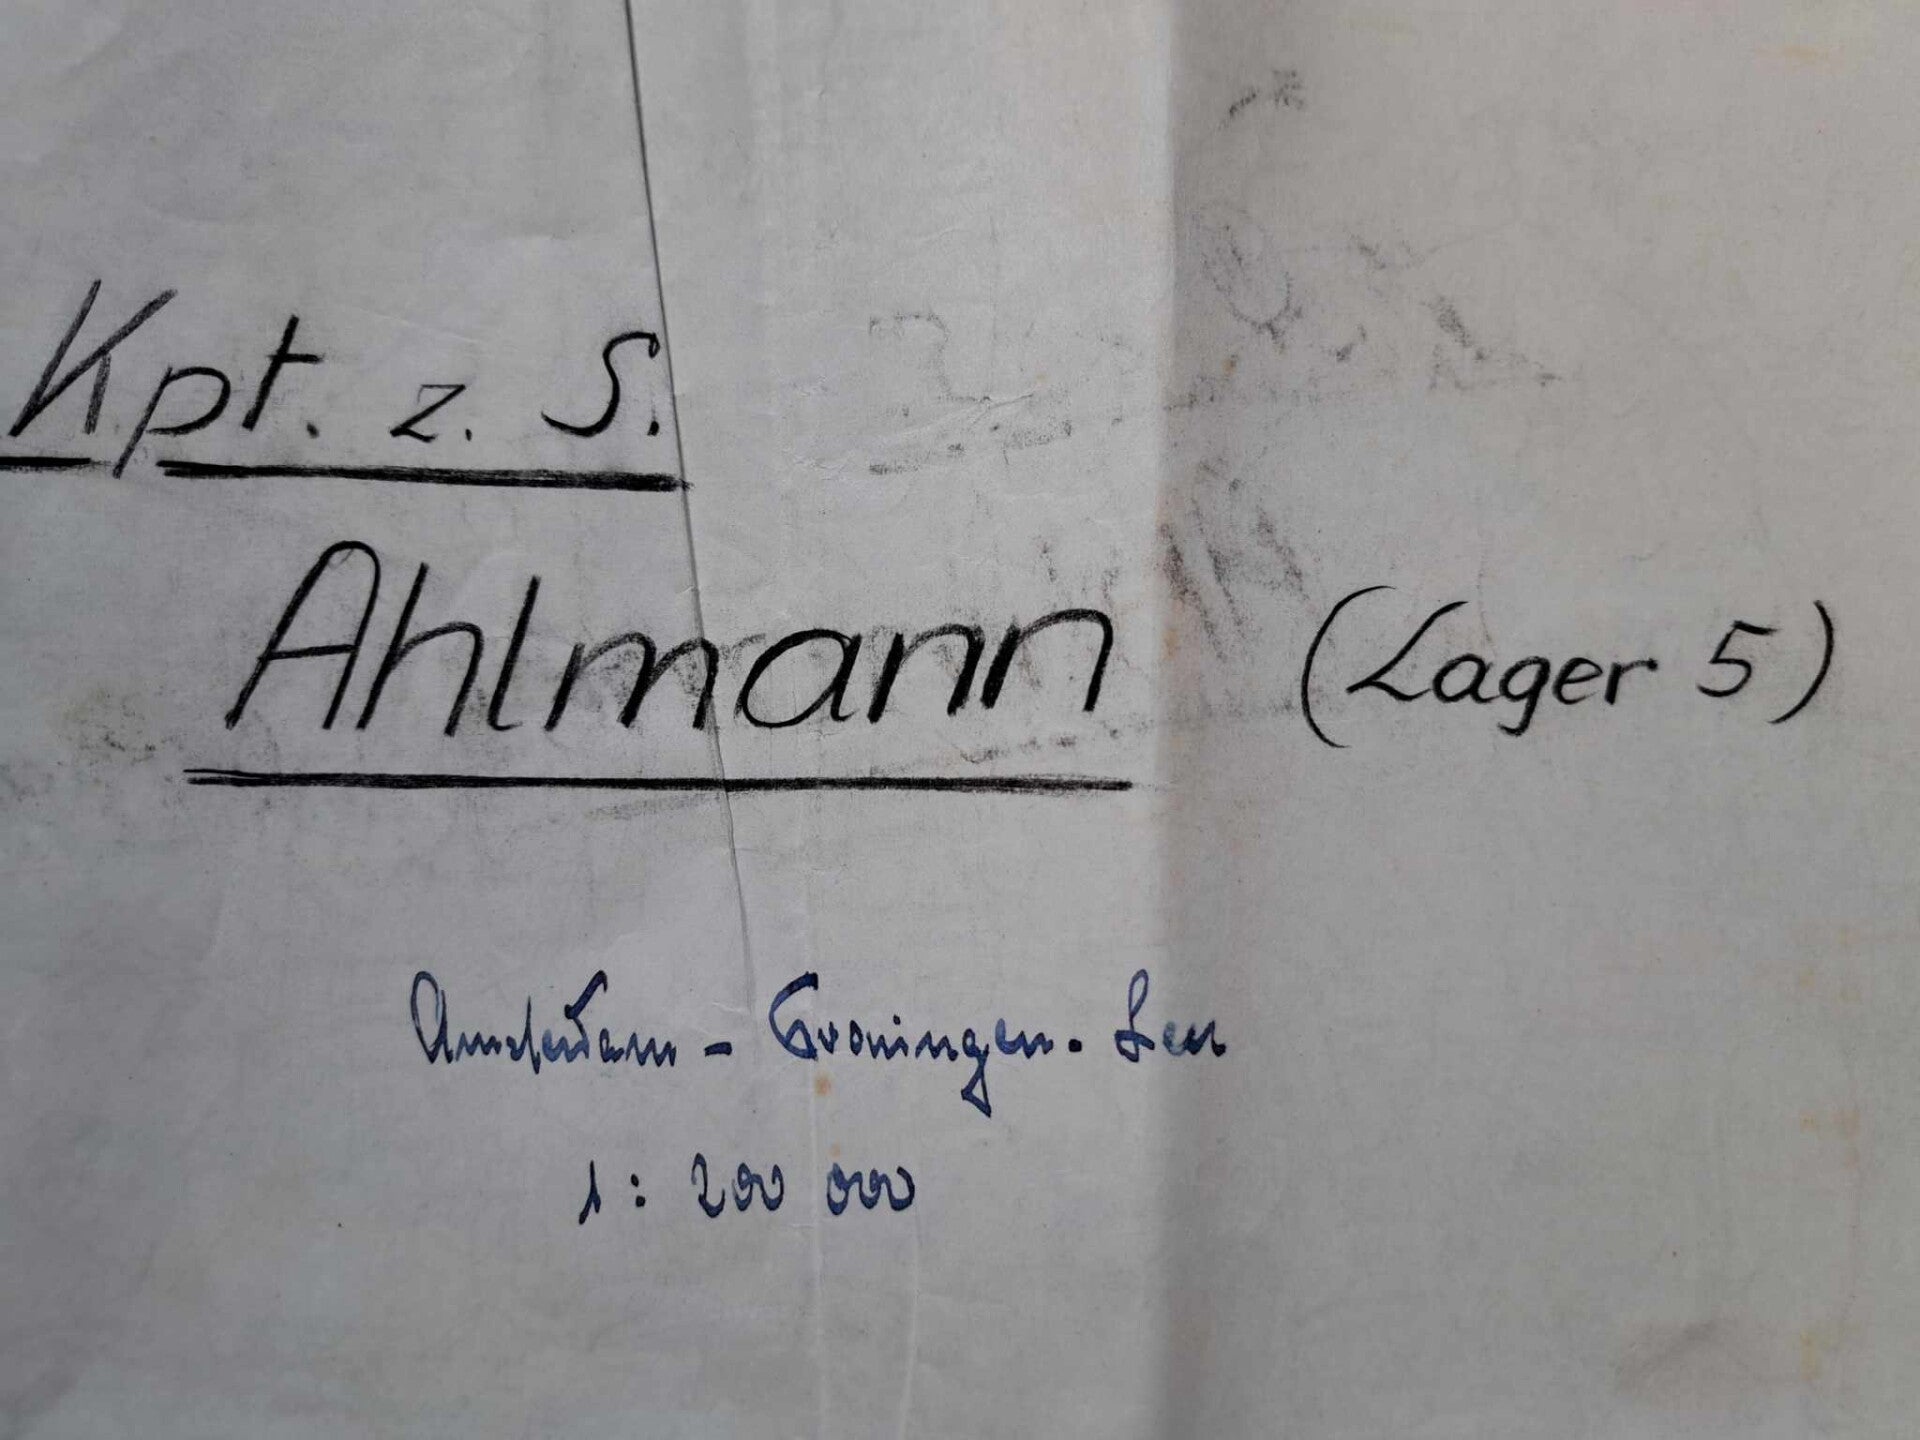 Kpt. z. S.
Ahlmann (Lager 5)
Amsterdam - Groningen - Leer
1 : 200 000